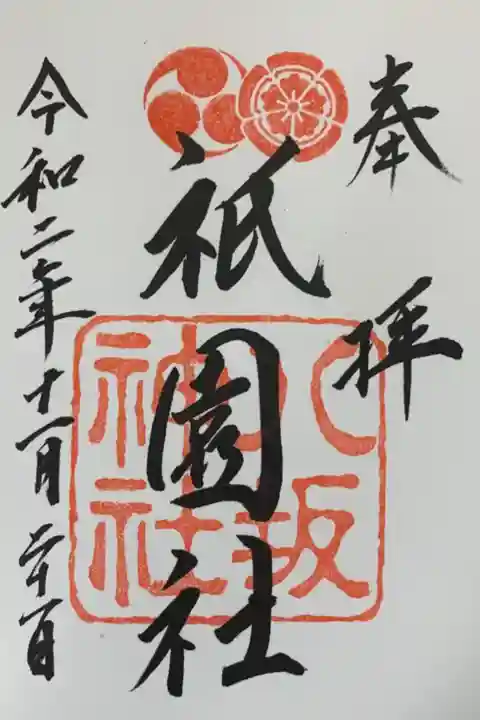 奉拝
祇園社
八坂
神社
令和二年十一月二十一日